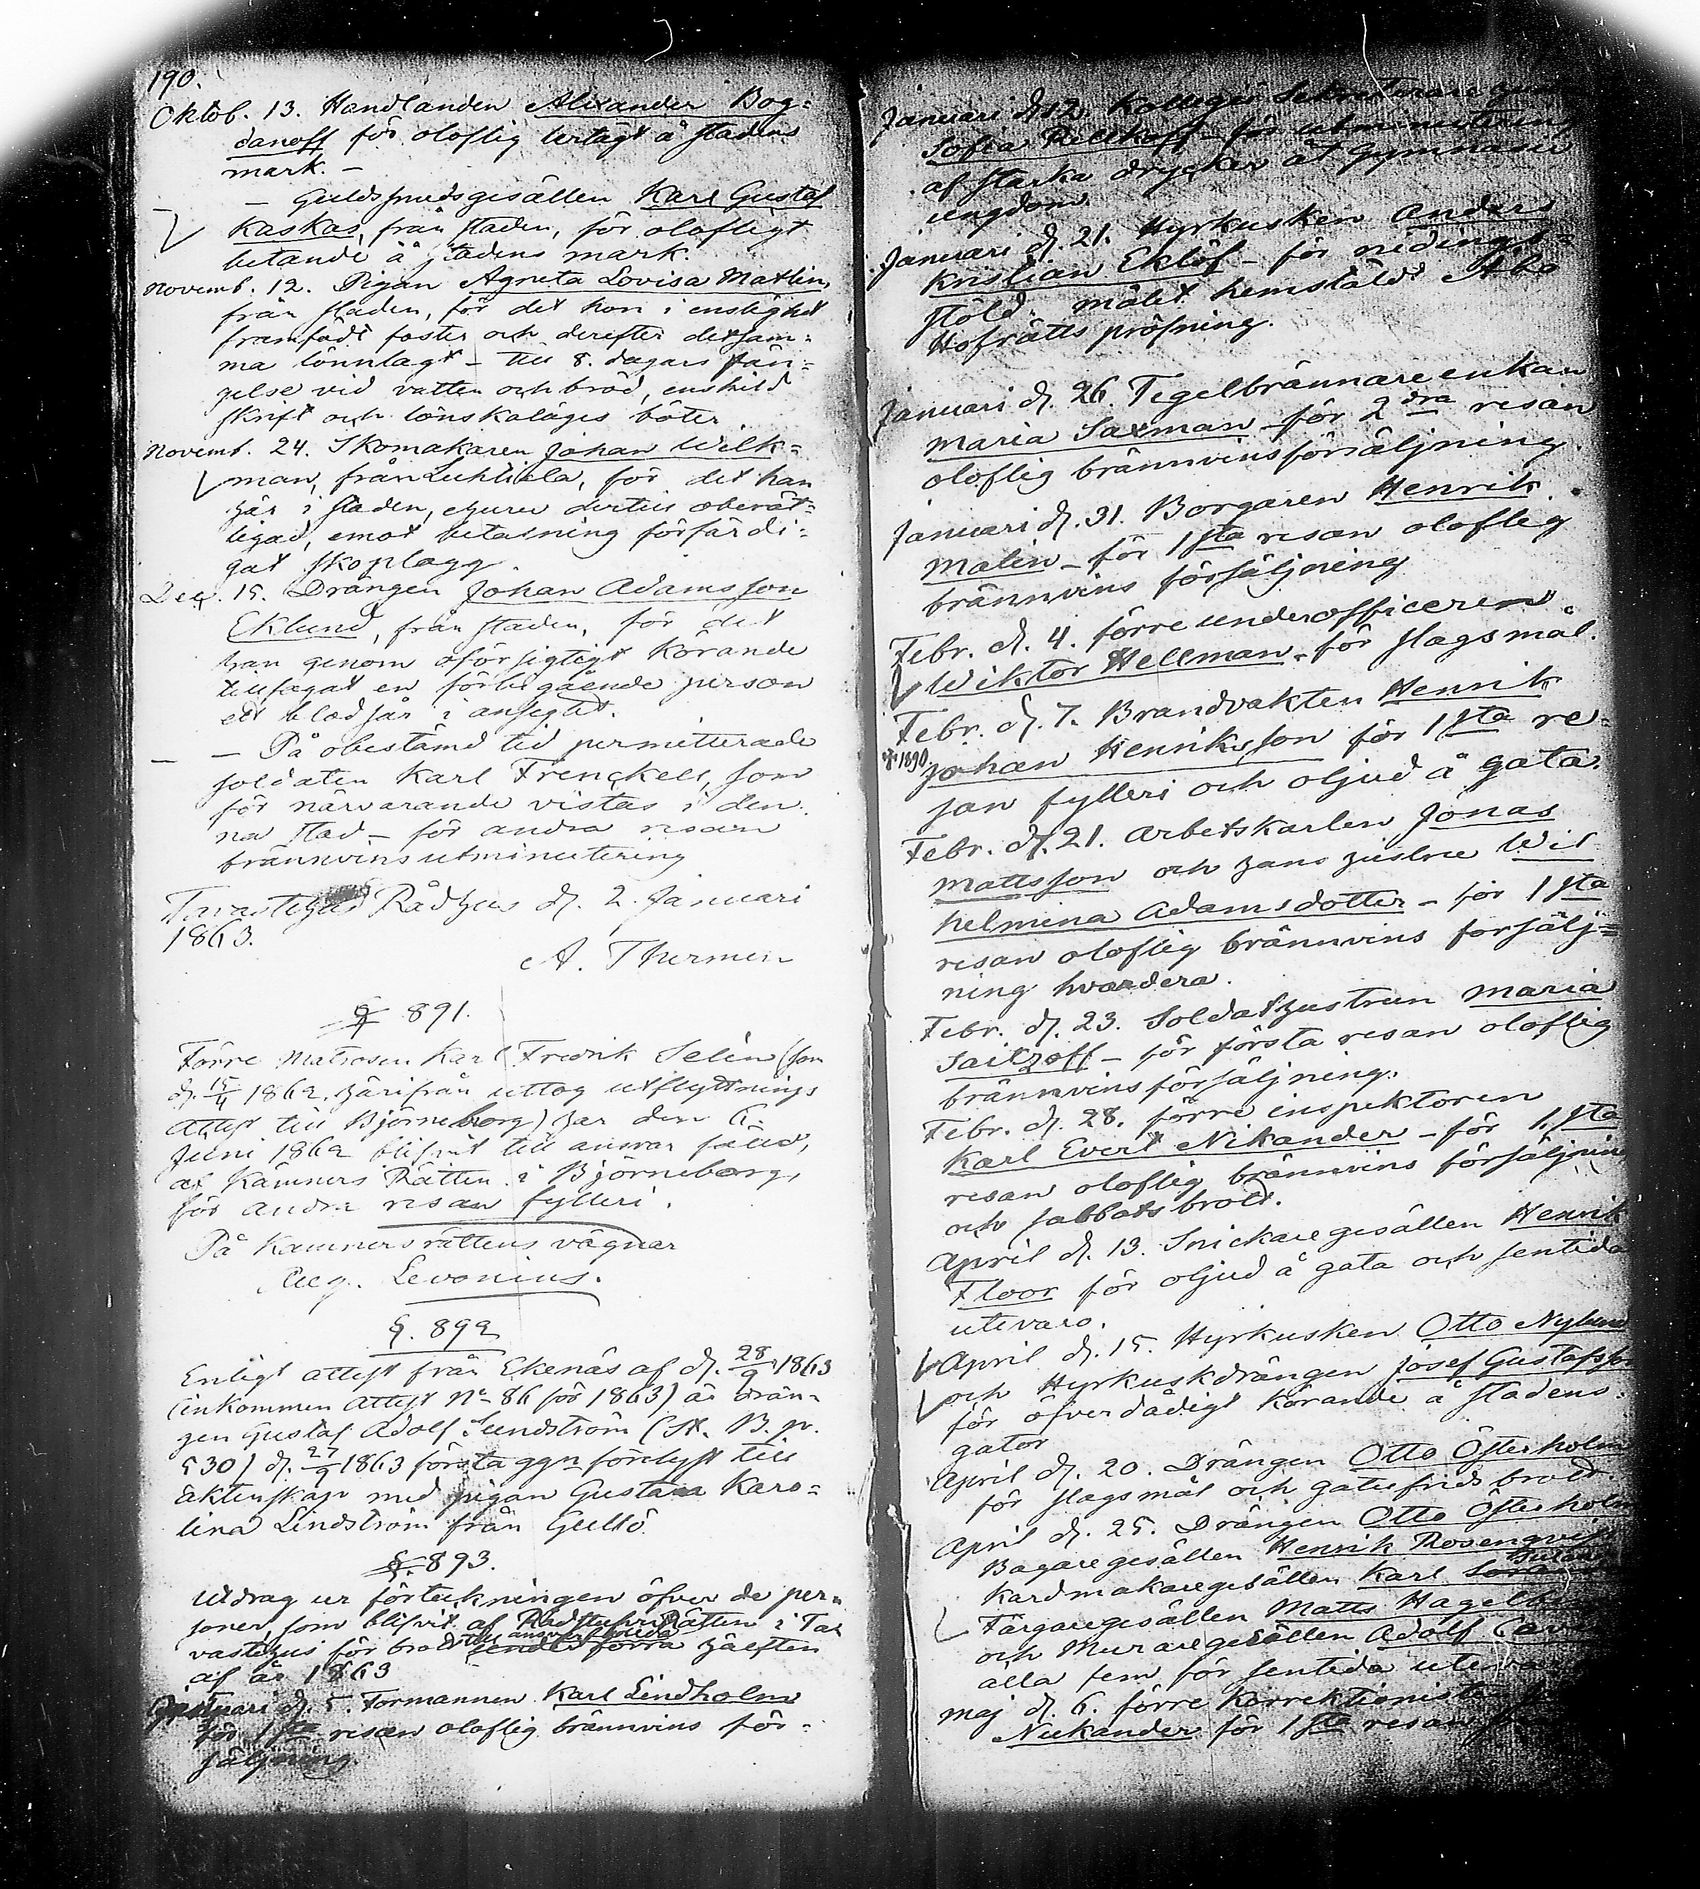 190.
Oktob. 13. Handlanden Alexander Bog=
danoff för oloflig lertägt å stadens
mark. -
- Guldsmedsgesällen Karl Gustaf
Kaskas, från staden, för olofligt
betande å stadens mark.
Novemb. 12. Pigan Agneta Lovisa Matlin,
från staden, för det hon i enslighet
framfödt foster och derefter detsam=
ma lönnlagt - till 8. dagars fän=
gelse vid vatten och bröd, enskild
skrift och lönskaläges böter
Novemb. 24. Skomakaren Johan Wilk=
man, från Luhtiala, för det han
här i staden, ehuru dertill oberät=
tigad, emot betalning förfärdi=
gat skoplagg.
Dec. 15. Drängen Johan Adamsson
Eklund, från staden, för det
han genom oförsigtigt körande
tillfogat en förbigående person
ett blodsår i ansigtet.
- På obestämd tid permitterade
soldaten Karl Frenckell, som
för närvarande vistas i den
na stad - för andra resan
brännvinsutminutering
Tavastehus Rådhus d. 2. Januari
1863.
A. Thermen
§ 891.
Förre Matrosen Karl Fredrik Selin (som
d. 15/4 1862. härifrån uttog utflyttnings
attest till Björneborg) har den 6.
Juni 1862 blifvit till ansvar fälld,
af Kämners Rätten i Björneborg,
för andra resan fylleri.
På Kämnersrättens vägnar
Aug. Levonius.
§. 892
Enligt attest från Ekenäs af d. 28/9 1863
(inkommen attest No 86 för 1863) är drän=
gen Gustaf Adolf Sundström (St. B. p.
530) d. 27/9 1863 första ggn förelyst till
äktenskap med pigan Gustava Karo=
lina Lindström från Gullö.
§. 893.
Utdrag ur förteckningen öfver de per=
soner, som blifvit af Rådstufvu Rätten i Ta
till ansvar fällde
vastehus för brott under förra hälften
af år 1863
Januari d. 5. Formannen Karl Lindholm
för 1sta resan oloflig brännvins för=
säljning.
Januari d. 12. Kollegii Sekreteraren
Sofia Rellkoff - för utminutering
af starka drycker åt Gymnasii
ungdom
Januari d. 21. Hyrkusken Anders
Kristian Eklöf - för nidings=
stöld. målet hemstäldt Åbo
Hofrätts pröfning.
Januari d. 26. Tegelbrännare enkan
Maria Saxman - för 2dra resan
oloflig brännvinsförsäljning.
Januari d. 31. Borgaren Henrik
Malin - för 1sta resan oloflig
brännvins försäljning
Febr. d. 4. förre underofficeren
Wiktor Hellman - för slagsmål.
Febr. d. 7. Brandvakten Henrik
† 1890
Johan Henriksson för 1sta re=
san fylleri och oljud å gata.
Febr. d. 21. Arbetskarlen Jonas
Mattsson och hans hustru Wil
helmina Adamsdotter - för 1sta
resan oloflig brännvins försälj=
ning hvardera.
Febr. d. 23. Soldathustrun Maria
Saitzoff - för första resan oloflig
brännvinsförsäljning.
Febr. d. 28. förre inspektoren
Karl Evert Nikander - för 1.sta
resan oloflig brännvins försäljning
och sabbatsbrott.
April d. 13. Snickaregesällen Henrik
Floor för oljud å gata och sentida
utevaro.
April d. 15. Hyrkusken Otto Nylund
och Hyrkuskdrängen Josef Gustafsson
för öfverdådigt körande å stadens
gator
April d. 20. Drängen Otto Österholm
för slagsmål och gatufrids brott.
April d. 25. Drängen Otto Österholm
Bagaregesällen Henrik Rosenqvist
Kardmakaregesällen Karl
Färgaregesällen Matts
och Muraregesällen Adolf
alla fem för sentida utevaro
Maj d. 6. förre Korrektionisten
Nukander för 1sta resan